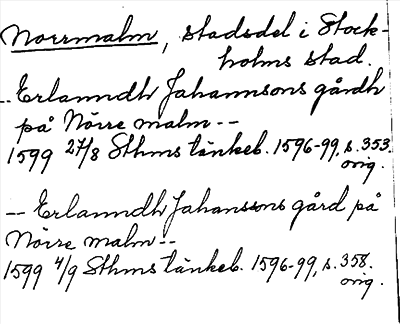 Norrmalm, stadsdel i Stock-
holms stad.
-- Erlanndh Johannsons gårdh
på Nörre malm --
1599 27/8 Sthms tänkeb. 1596-99, s. 353.
orig.
-- Erlanndh Johanssons gård på
Nörre malm --
1599 4/9 Sthms tänkeb. 1596-99, s. 358.
orig.